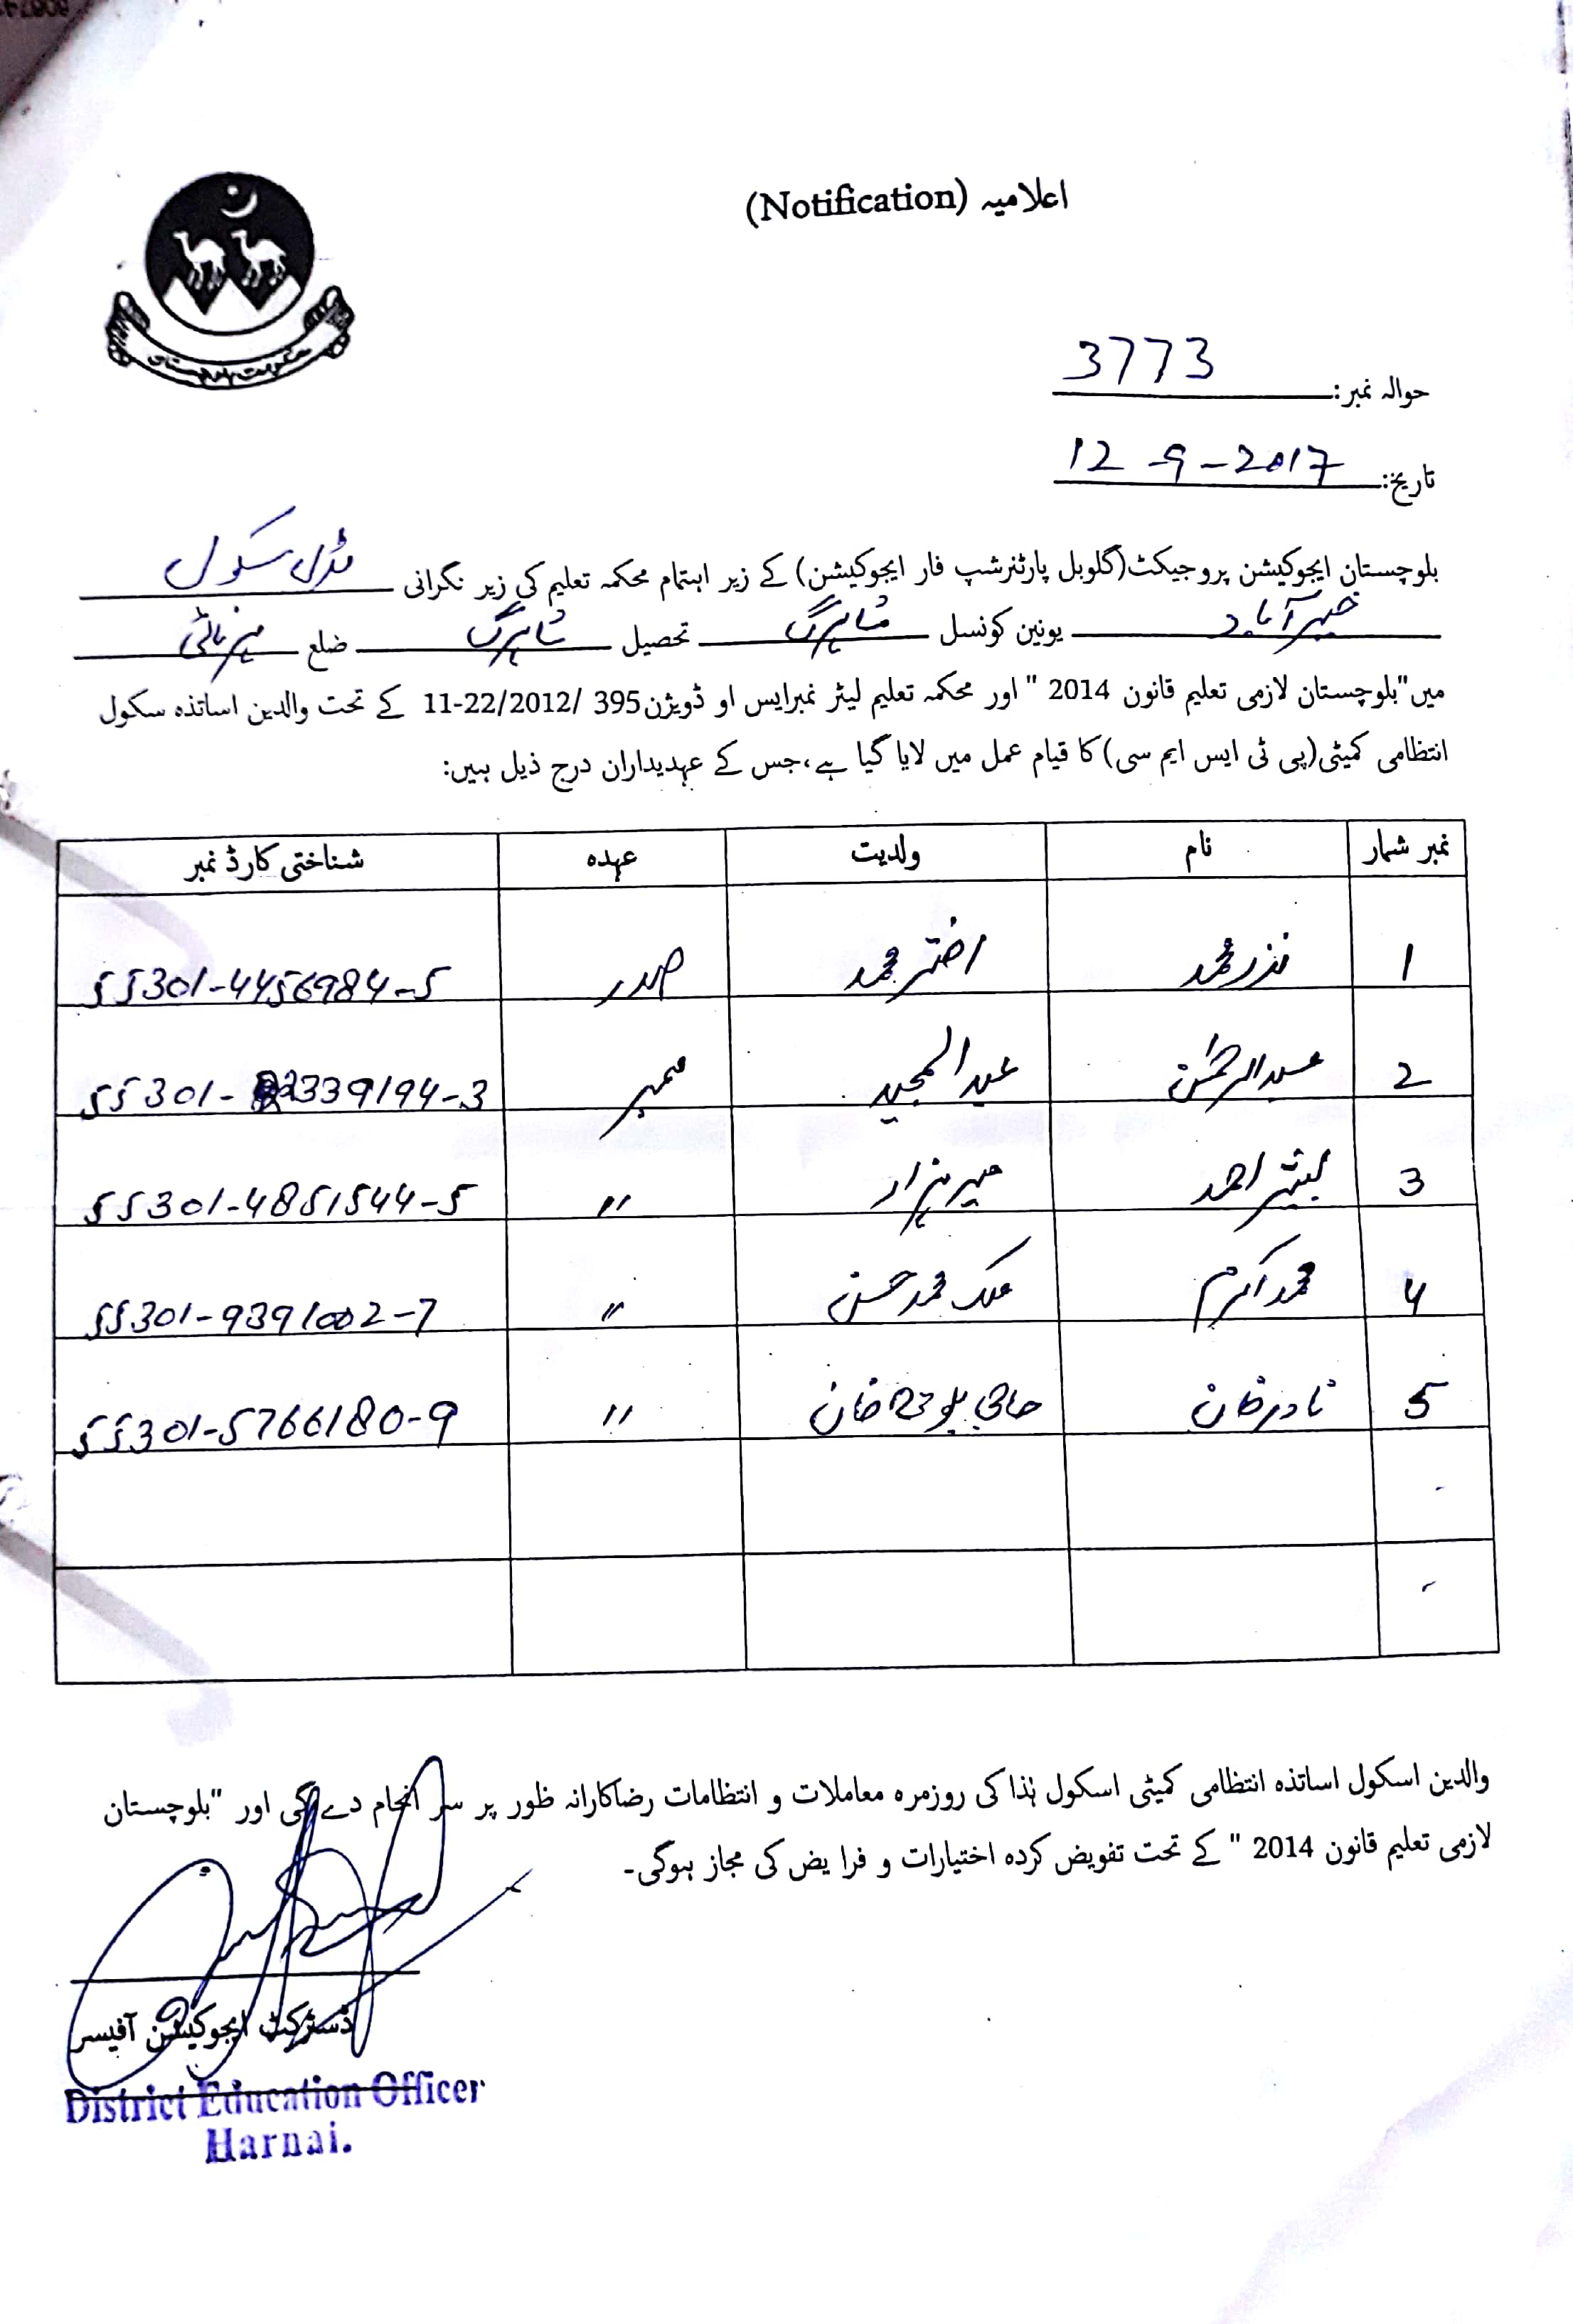 اعلامیہ (Notification)
حکومت بلوچستان
حوالہ نمبر: 3773
تاریخ: 12-9-2017
بلوچستان ایجوکیشن پروجیکٹ(گلوبل پارٹنرشپ فار ایجوکیشن) کے زیر اہتمام محکمہ تعلیم کی زیر نگرانی مڈل سکول
خیبر آباد یونین کونسل شاہرگ تحصیل شاہرگ ضلع ہرنائی
میں"بلوچستان لازمی تعلیم قانون 2014 " اور محکمہ تعلیم لیٹر نمبرایس او ڈویژن395 /11-22/2012 کے تحت والدین اساتذہ سکول
انتظامی کمیٹی(پی ٹی ایس ایم سی) کا قیام عمل میں لایا گیا ہے،جس کے عہدیداران درج ذیل ہیں:
نمبر شمار نام ولدیت عہدہ شناختی کارڈ نمبر
1 نذر محمد اختر محمد صدر 55301-4456984-5
2 عبدالرحمٰن عبدالمجید ممبر 55301-2339194-3
3 بشیر احمد میر ہزار " 55301-4851544-5
4 محمد اکرم ملک محمد حسن " 55301-9391002-7
5 نادر خان حاجی خان " 55301-5766180-9
والدین اسکول اساتذہ انتظامی کمیٹی اسکول ہٰذا کی روزمرہ معاملات و انتظامات رضاکارانہ طور پر سر انجام دے گی اور "بلوچستان
لازمی تعلیم قانون 2014 " کے تحت تفویض کردہ اختیارات و فرایض کی مجاز ہوگی۔
ڈسٹرکٹ ایجوکیشن آفیسر
District Education Officer
Harnai.